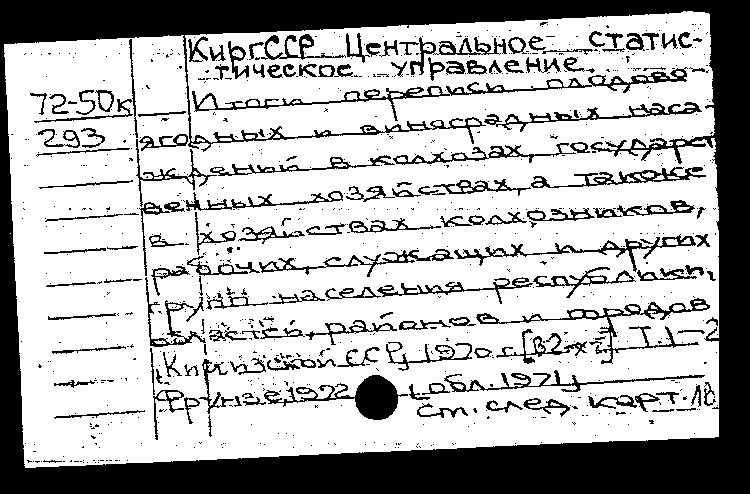 КиргССР. Центральное статис-
тическое управление.
72-50к Итоги переписи плодово-
293 ягодных и виноградных наса-
ждений в колхозах, государст
венных хозяйствах, а также
в хозяйствах колхозников,
рабочих, служащих и других
групп населения республики,
областей, районов и городов
[Киргизской ССР] 1970 г. [В 2-х т.] Т. 1-2
Фрунзе, 1972 [обл. 1971]
См. след. карт.